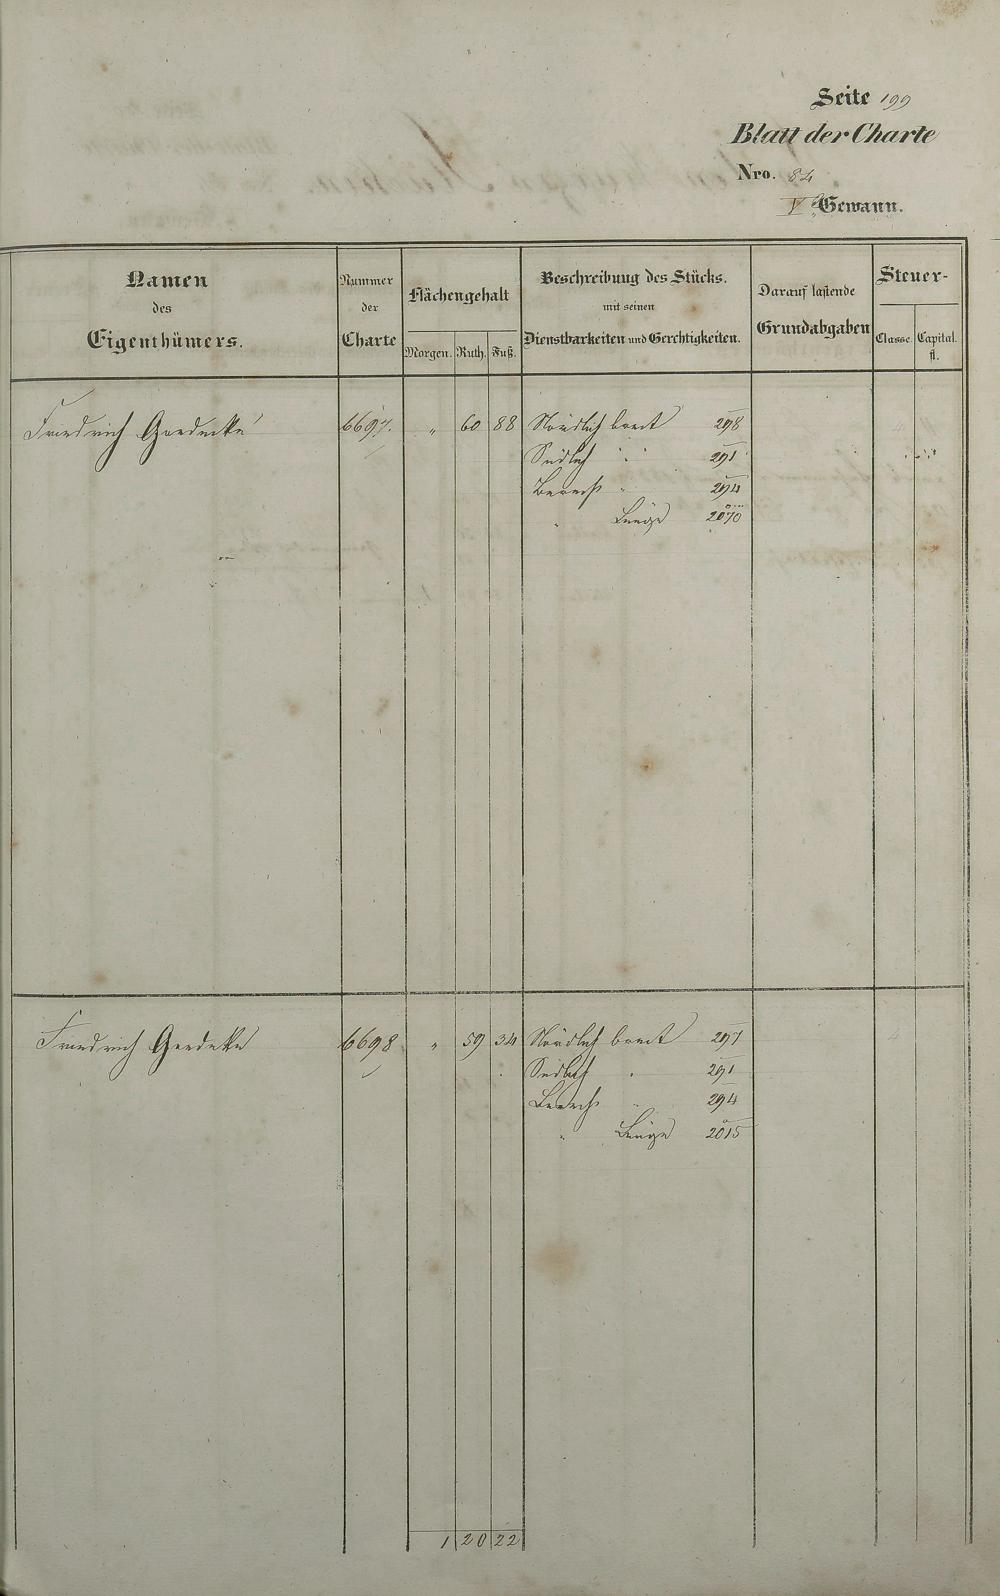 Seite 199
Blatt der Charte
Nro. 84
V Gewann.
Namen des Eigenthümers.
Nummer der Charte
Flächengehalt
Morgen. Ruth. Fuß.
Beschreibung des Stücks. mit seinen Dienstbarkeiten und Gerechtigkeiten.
Darauf lastende Grundabgaben
Steuer-
Classe. Capital. fl.
Friedrich 6697. " 60 88 Nördlich breit 298
Südlich " 291
Berech " 294
" Länge 2070
Friedrich 6698 " 59 34 Nördlich breit 297
Südlich " 291
Berech " 294
" Länge 2015
1 20 22